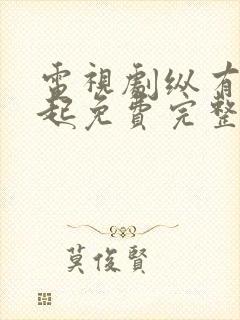 電視劇纵有
起免費完整
莫俊賢